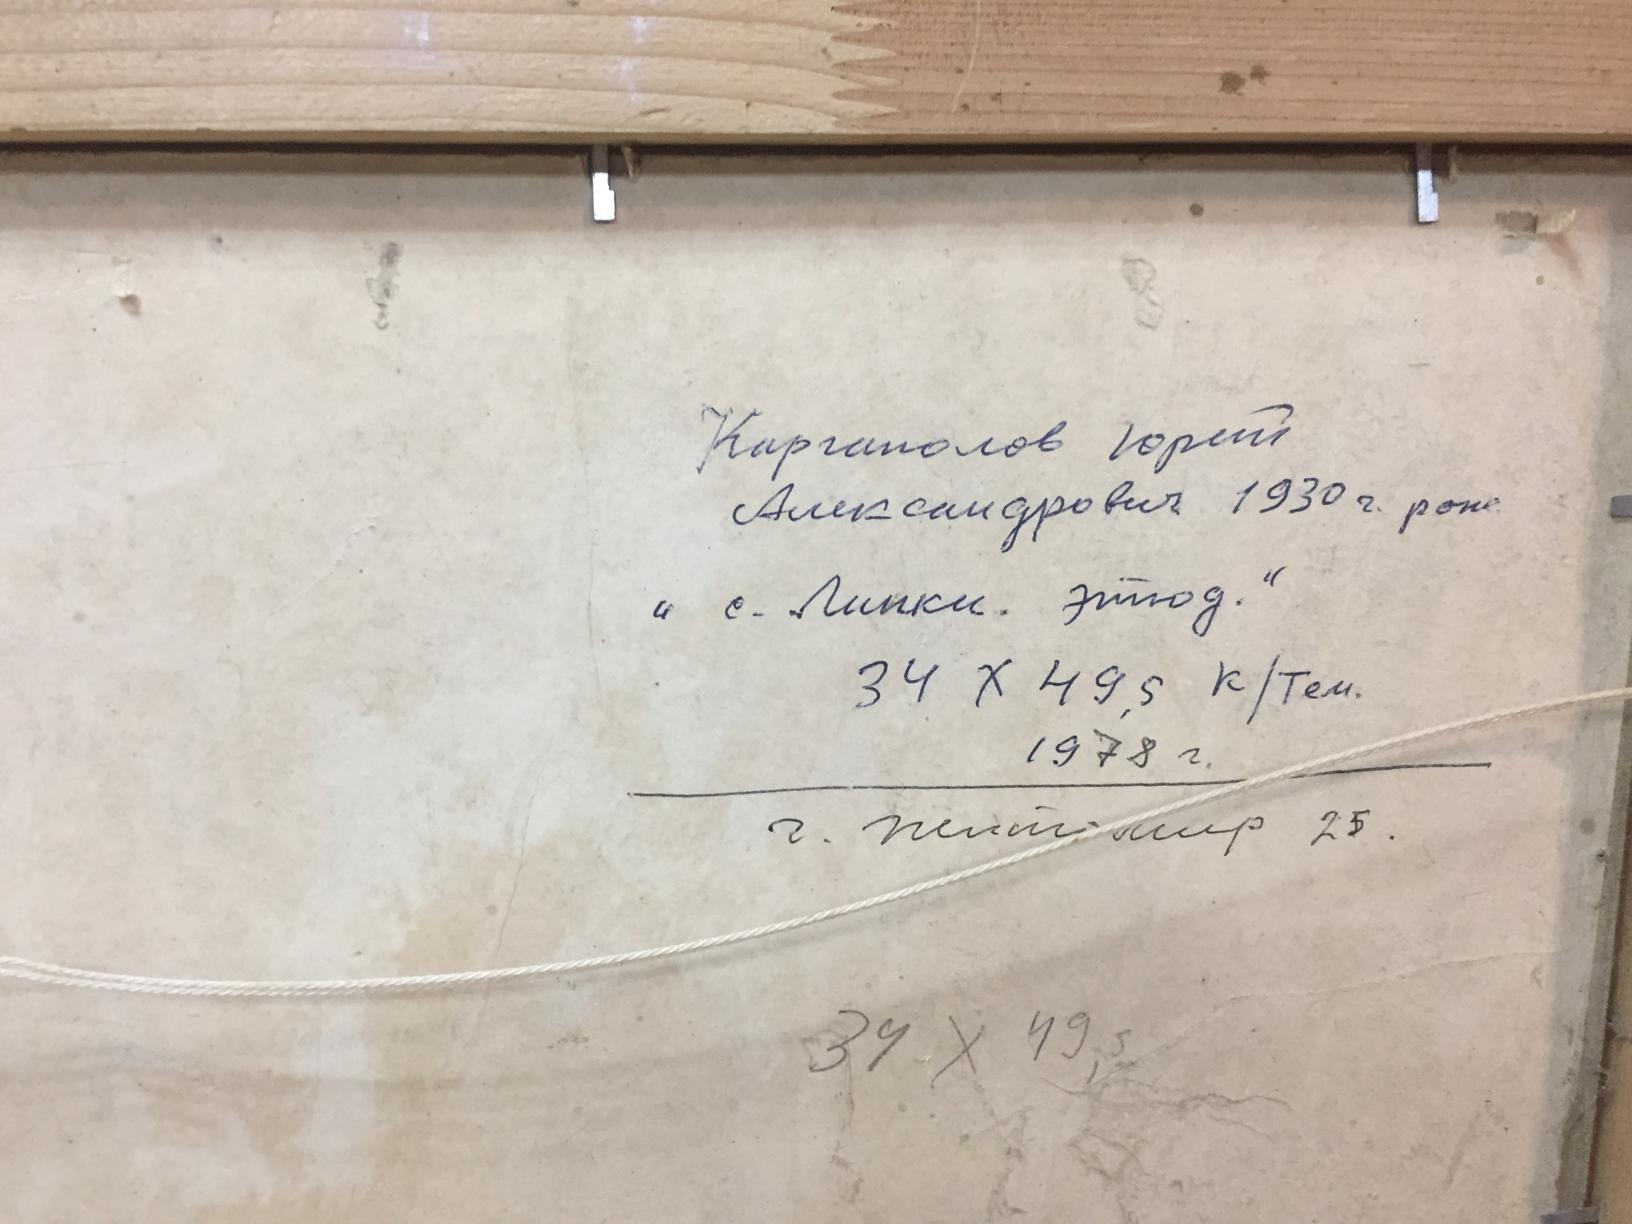 Каргаполов Юрий
Александрович 1930 г. рож
" с. Липки. Этюд."
34 X 49,5 к/Тем.
1978 г.
г. Житомир 25.
34 X 49,5